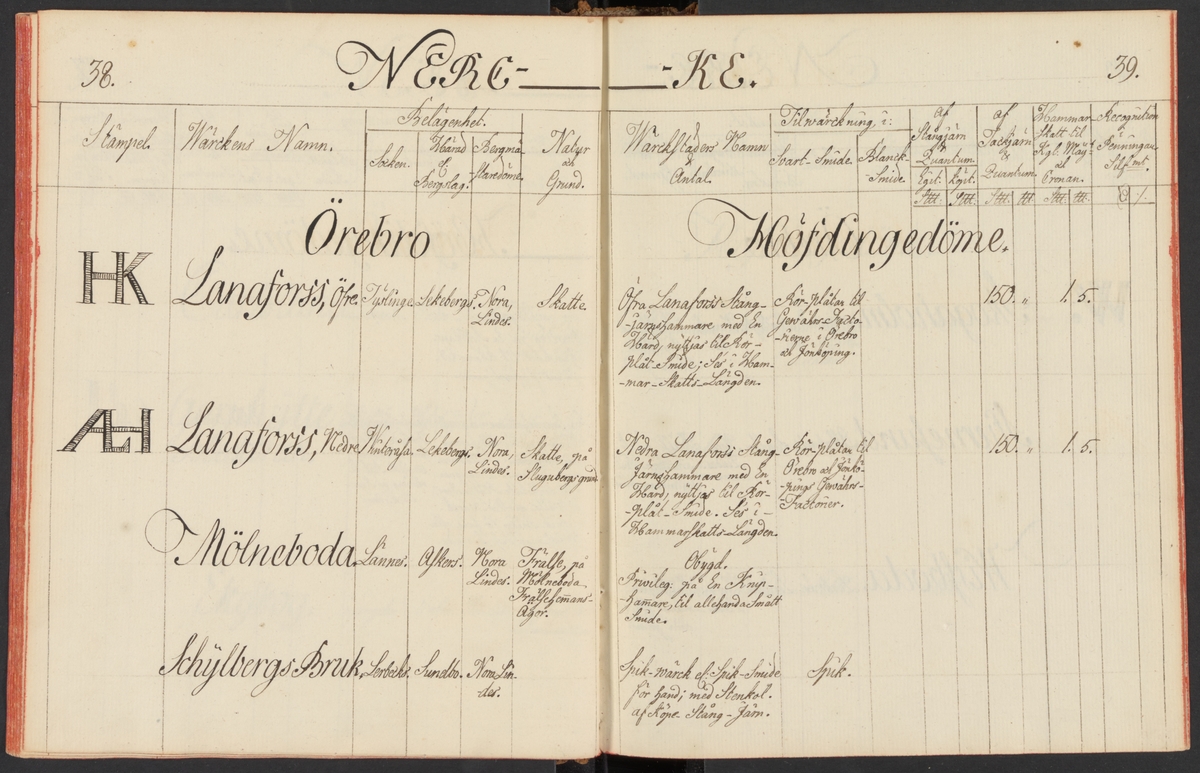 38.
NERE- -KE.
39.
Stämpel.
Wärckens Namn.
Belägenhet.
Socken.
Härad
&
Bergslag.
Bergmä-
staredöme.
Natur
och
Grund.
Wärckstäders Namn
&
Antal.
Tilwärckning, i:
Svart-Smide.
Blanck-
Smide.
af
Stångjärn
&
Quantum.
af
Tackjärn
&
Quantum.
Hammar-
Skatt til
Kgl. Maj:t
och
Cronan.
Recognition
i
Penningar
Silf:mt.
Örebro Höfdingedöme.
HK
Lanaforss, Öfre.
Tystinge.
Lekebergs.
Nora,
Lindes.
Skatte.
Öfra Lanaforss Stång-
-järnshammare med En
Härd, nyttjas til Rör-
plåt-Smide; Ses i Ham-
mar-Skatts-Längden.
Rör-plåtar til
Gewährs-Facto-
-rierne i Örebro
och Jönköping.
150. "
1. 5.
ALH
Lanaforss, Nedre
Lekebergs.
Nora,
Lindes.
Skatte, på
Nedra Lanaforss Stång-
Järnshammare med En
Härd, nyttjas til Rör-
-plåt-Smide. Ses i-
Hammarskatts-Längden.
Rör-plåtar til
Örebro och Jönkö-
-pings Gewährs-
-Factorier.
150. "
1. 5.
Mölneboda.
Lännes.
Askers.
Nora
Lindes.
Frälse, på
Mölneboda
Frälsehemans-
Ägor.
Obygd.
Privileg. på En Knip-
-hamare, til allehanda Smått
Smide.
Schylbergs Bruk.
Sundbo.
Nora Lin-
des.
Spik-wärck & Spik-Smide
för hand; med Stenkol.
af Köpe Stång-Järn.
Spik.